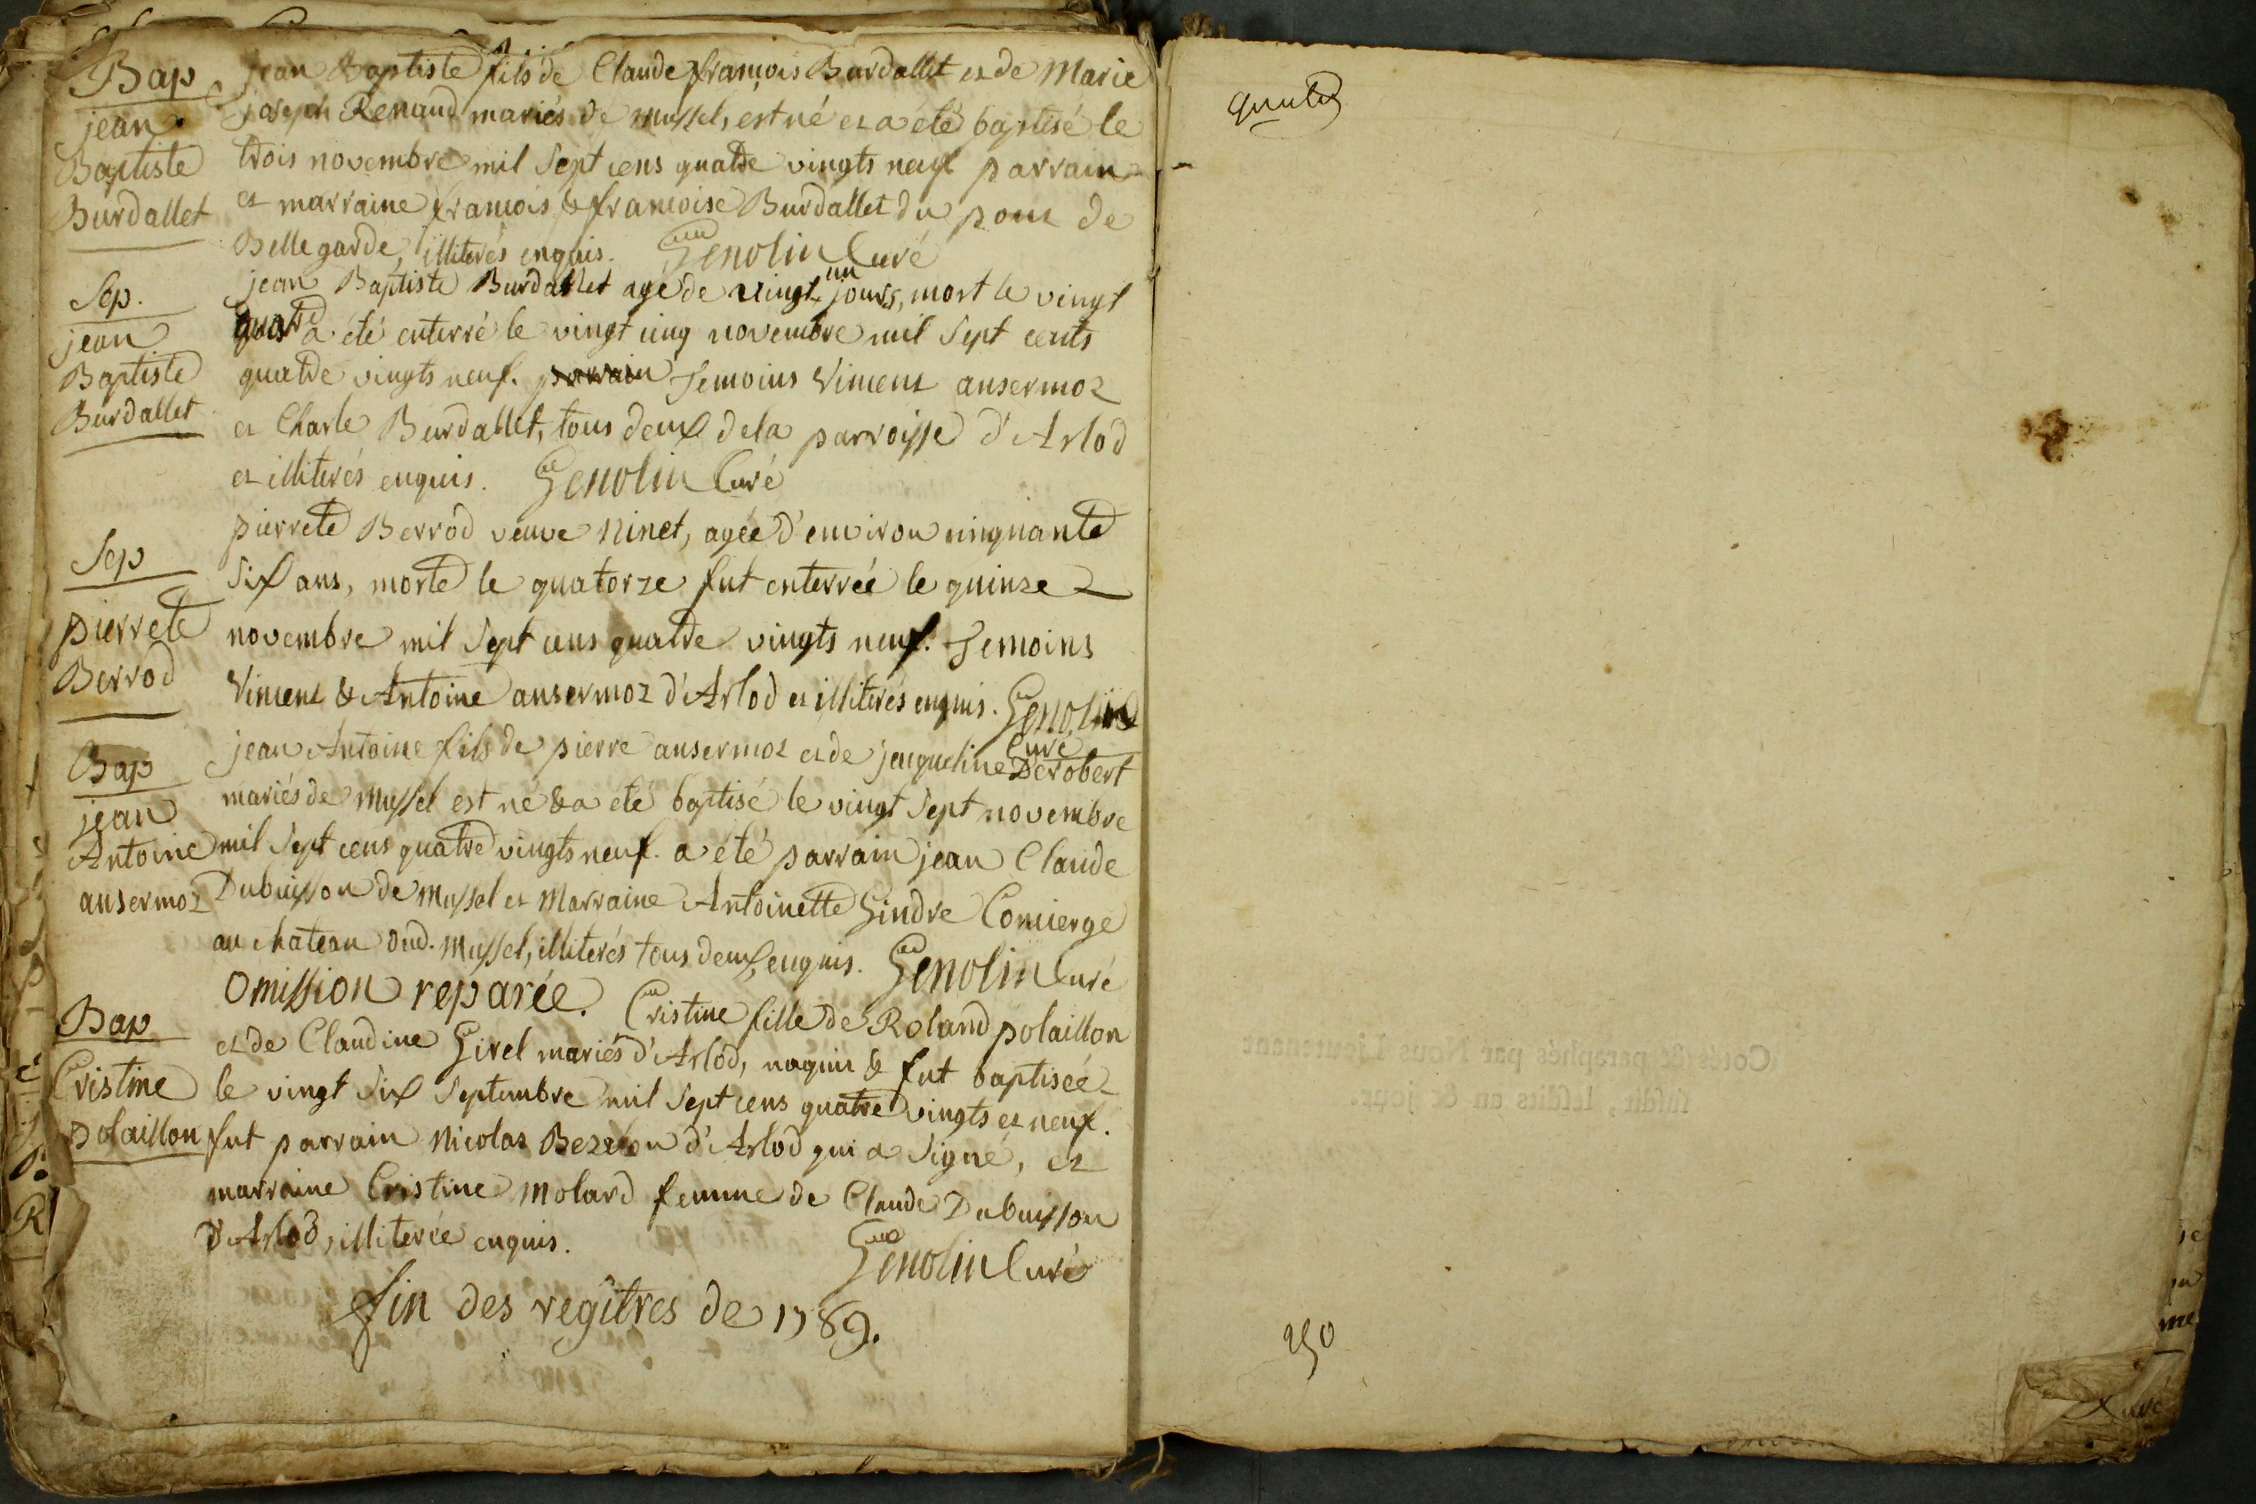 Bap
jean
Baptiste
Burdallet
jean Baptiste fils de Claude françois Burdallet et de Marie
joseph Renaud mariés de mussel, est né et a été baptisé le
trois novembre mil sept cens quatre vingts neuf parrain
et marraine francois & francoise Burdallet du pont de
Belle garde, illiterés enquis. Genolin Curé
Sep.
jean
Baptiste
Burdallet
jean Baptiste Burdallet agé de vingt un jours, mort le vingt
quatre a été enterré le vingt cinq novembre mil sept cents
quatre vingts neuf. parrain Temoins Vincent ansermoz
et Charle Burdallet, tous deux de la parroisse d'Arlod
et illiterés enquis. Genolin Curé
Sep
pierrete
Berrod
pierrete Berrod veuve Ninet, agée d'environ cinquante
six ans, morte le quatorze fut enterrée le quinze
novembre mil sept cens quatre vingts neuf. Temoins
Vincent & Antoine ansermoz d'Arlod et illiterés enquis. Genolin
Curé
Bap
jean
Antoine
ansermoz
jean Antoine fils de pierre ansermoz et de jacqueline Derobert
mariés de Mussel est né & a été baptisé le vingt sept novembre
mil sept cens quatre vingts neuf. a été parrain jean Claude
Dubuisson de Mussel et Marraine Antoinette Gindre Concierge
au chateau dud. Mussel, illiterés tous deux, enquis. Genolin Curé
Bap
Cristine
polaillon
Omission reparée. Cristine fille de Roland polaillon
et de Claudine Girel mariés d'Arlod, naquit & fut baptisée
le vingt six septembre mil sept cens quatre vingts et neuf.
fut parrain Nicolas d'Arlod qui a signé, et
marraine Cristine Molard femme de Claude Dubuisson
d'Arlod, illiterée enquis. Genolin Curé
fin des regîtres de 1789.
250
Cotés & paraphés par Nous Lieutenant
susdit, lesdits an & jour.
Curé